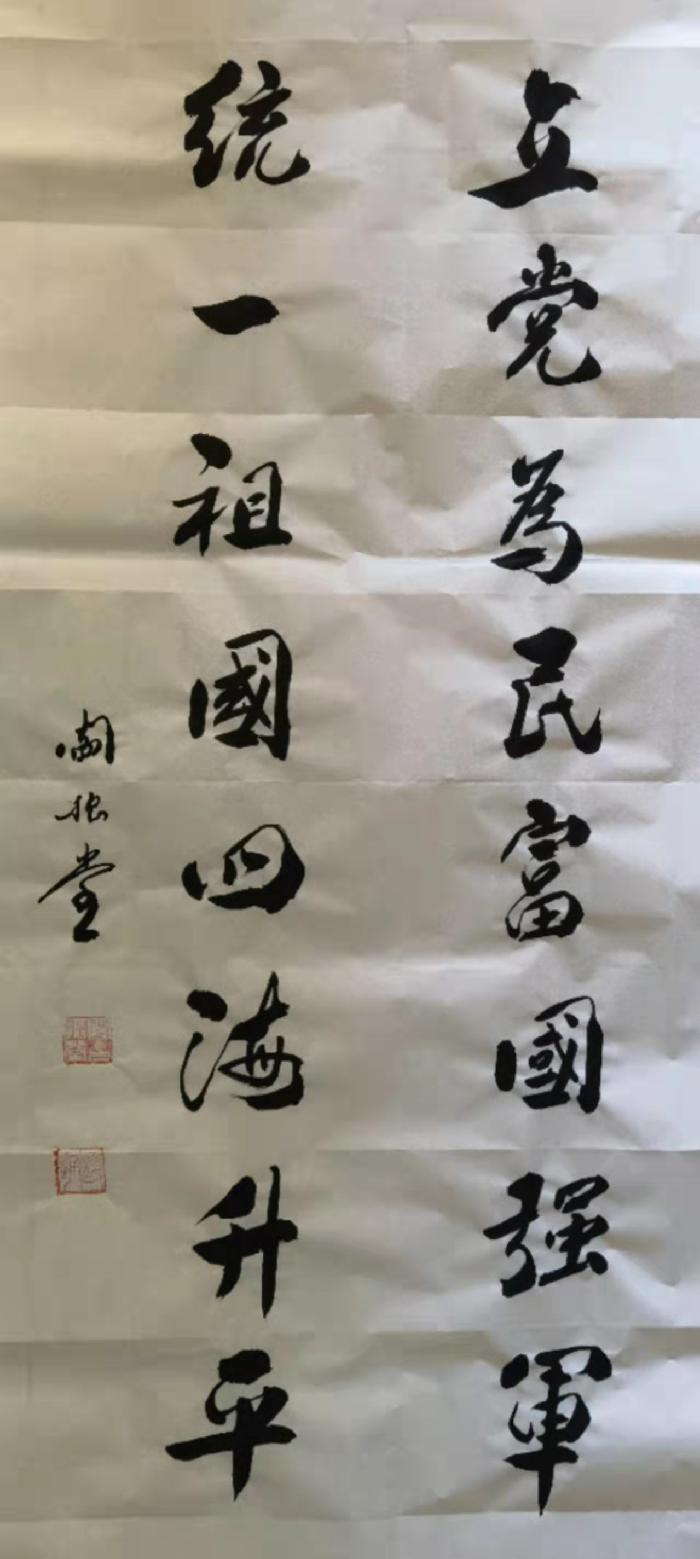 立党為民富國强軍
統一祖國四海升平
堂